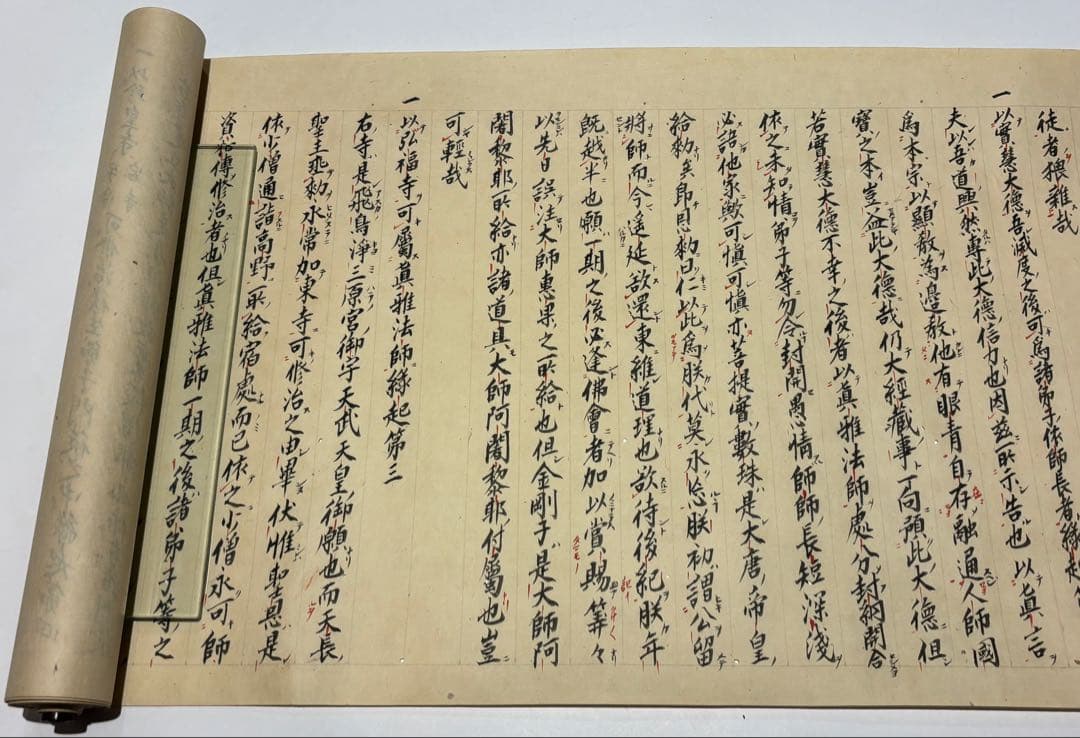 徒者猥雜哉
一 以實慧大德吾滅度之後可爲諸弟子依師長者緣起第
夫以吾道興然專此大德信力也因茲所示告也以眞言
爲本宗以顯教爲邊教他有眼青自存融通人師國
寶之本豈益此大德哉仍大經藏事一向預此大德但
若實慧大德不幸之後者以眞雅法師處分封納開合
依之未知情弟子等勿令封開愚情師師長短深淺
必語他家歟可慎可慎亦菩提實數珠是大唐帝皇
給勅矣即恩勅曰仁以此爲朕代莫永忘朕初謂公留
將師而今遙延欲還東維道理也欲待後紀朕年
既越半也願一期之後必逢佛會者加以賞賜等々
以先日誤注大師惠果之所給也但金剛子是大師阿
闍黎耶所給亦諸道具大師阿闍黎耶付屬也豈
可輕哉
一 以弘福寺可屬眞雅法師緣起第三
右寺是飛鳥淨三原宮御宇天武天皇御願也而天長
聖主乖勅永常加東寺可修治之由畢伏惟聖恩是
依少僧通詣高野所給宿處而已依之少僧永可師
資相傳修治者也但眞雅法師一期之後諸弟子等之